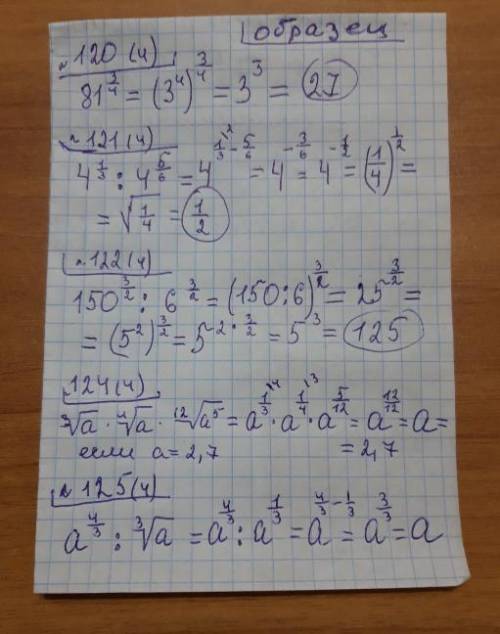 образец
№120 (4)
81^{3/4} = (3^4)^{3/4} = 3^3 = 27
№121 (4)
4^{1/3} : 4^{5/6} = 4^{1/3^{\2} - 5/6} = 4^{-3/6} = 4^{-1/2} = (1/4)^{1/2} =
= √(1/4) = 1/2
№122 (4)
150^{3/2} : 6^{3/2} = (150:6)^{3/2} = 25^{3/2} =
= (5^2)^{3/2} = 5^{2·3/2} = 5^3 = 125
124 (4)
∛a · ∜a · ¹²√a^5 = a^{1/3^{\4}} · a^{1/4^{\3}} · a^{5/12} = a^{12/12} = a =
если a = 2,7 = 2,7
№125 (4)
a^{4/3} : ∛a = a^{4/3} : a^{1/3} = a^{4/3 - 1/3} = a^{3/3} = a